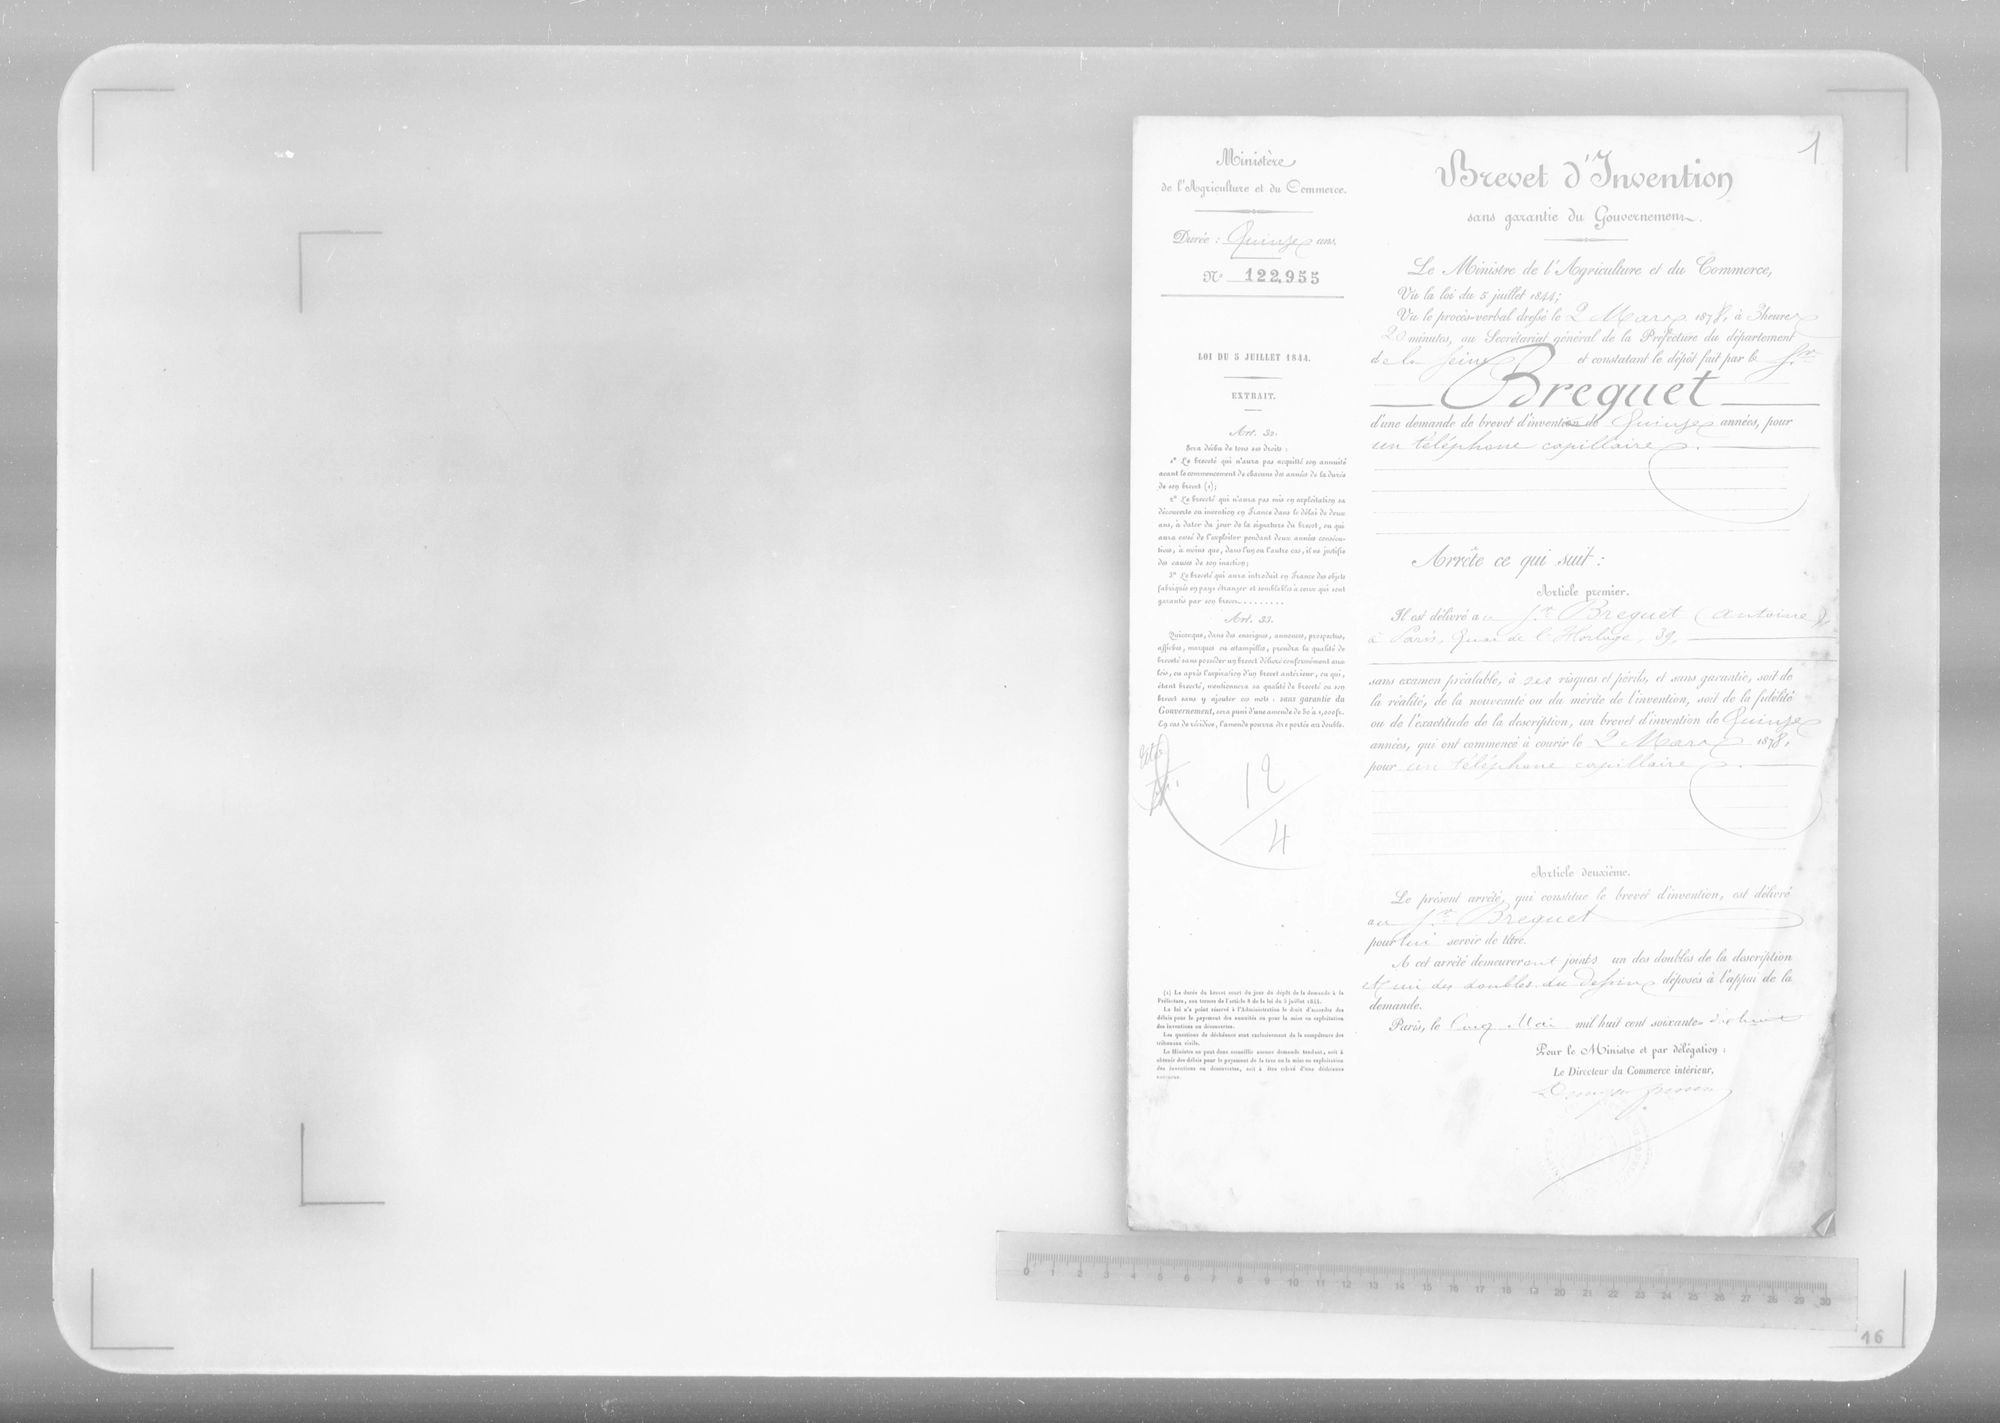 Ministère
de l'Agriculture et du Commerce.
Durée : Quinze ans.
N° 122,955
LOI DU 5 JUILLET 1844.
EXTRAIT.
Art. 32.
Sera déchu de tous ses droits :
1° Le breveté qui n'aura pas acquitté son annuité
avant le commencement de chacune des années de la durée
de son brevet (1);
2° Le breveté qui n'aura pas mis en exploitation sa
découverte ou invention en France dans le délai de deux
ans, à dater du jour de la signature du brevet, ou qui
aura cessé de l'exploiter pendant deux années consécu-
tives, à moins que, dans l'un ou l'autre cas, il ne justifie
des causes de son inaction;
3° Le breveté qui aura introduit en France des objets
fabriqués en pays étranger et semblables à ceux qui sont
garantis par son brevet.........
Art. 33.
Quiconque, dans des enseignes, annonces, prospectus,
affiches, marques ou estampilles, prendra la qualité de
breveté sans posséder un brevet délivré conformément aux
lois, ou après l'expiration d'un brevet antérieur, ou qui,
étant breveté, mentionnera sa qualité de breveté ou son
brevet sans y ajouter ces mots : sans garantie du
Gouvernement, sera puni d'une amende de 50 à 1,000 fr.
En cas de récidive, l'amende pourra être portée au double.
12
4
(1) La durée du brevet court du jour du dépôt de la demande à la
Préfecture, aux termes de l'article 8 de la loi du 5 juillet 1844.
La loi n'a point réservé à l'Administration le droit d'accorder des
délais pour le payement des annuités ou pour la mise en exploitation
des inventions ou découvertes.
Les questions de déchéance sont exclusivement de la compétence des
tribunaux civils.
Le Ministre ne peut donc accueillir aucune demande tendant, soit à
obtenir des délais pour le payement de la taxe ou la mise en exploitation
des inventions ou découvertes, soit à être relevé d'une déchéance
encourue.
1
Brevet d'Invention
sans garantie du Gouvernement.
Le Ministre de l'Agriculture et du Commerce,
Vu la loi du 5 juillet 1844;
Vu le procès-verbal dressé le 2 Mars 1878, à 3 heures
20 minutes, au Secrétariat général de la Préfecture du département
de la Seine et constatant le dépôt fait par le Sr
Breguet
d'une demande de brevet d'invention de Quinze années, pour
un téléphone capillaire.
Arrête ce qui suit :
Article premier.
Il est délivré au Sr Breguet (Antoine)
à Paris, Quai de l'Horloge, 39,
sans examen préalable, à ses risques et périls, et sans garantie, soit de
la réalité, de la nouveauté ou du mérite de l'invention, soit de la fidélité
ou de l'exactitude de la description, un brevet d'invention de Quinze
années, qui ont commencé à courir le 2 Mars 1878,
pour un téléphone capillaire.
Article deuxième.
Le présent arrêté, qui constitue le brevet d'invention, est délivré
au Sr Breguet
pour lui servir de titre.
A cet arrêté demeureront joints un des doubles de la description
et un des doubles du dessin déposés à l'appui de la
demande.
Paris, le Cinq Mai mil huit cent soixante-dix huit
Pour le Ministre et par délégation :
Le Directeur du Commerce intérieur,
0 1 2 3 4 5 6 7 8 9 10 11 12 13 14 15 16 17 18 19 20 21 22 23 24 25 26 27 28 29 30
16